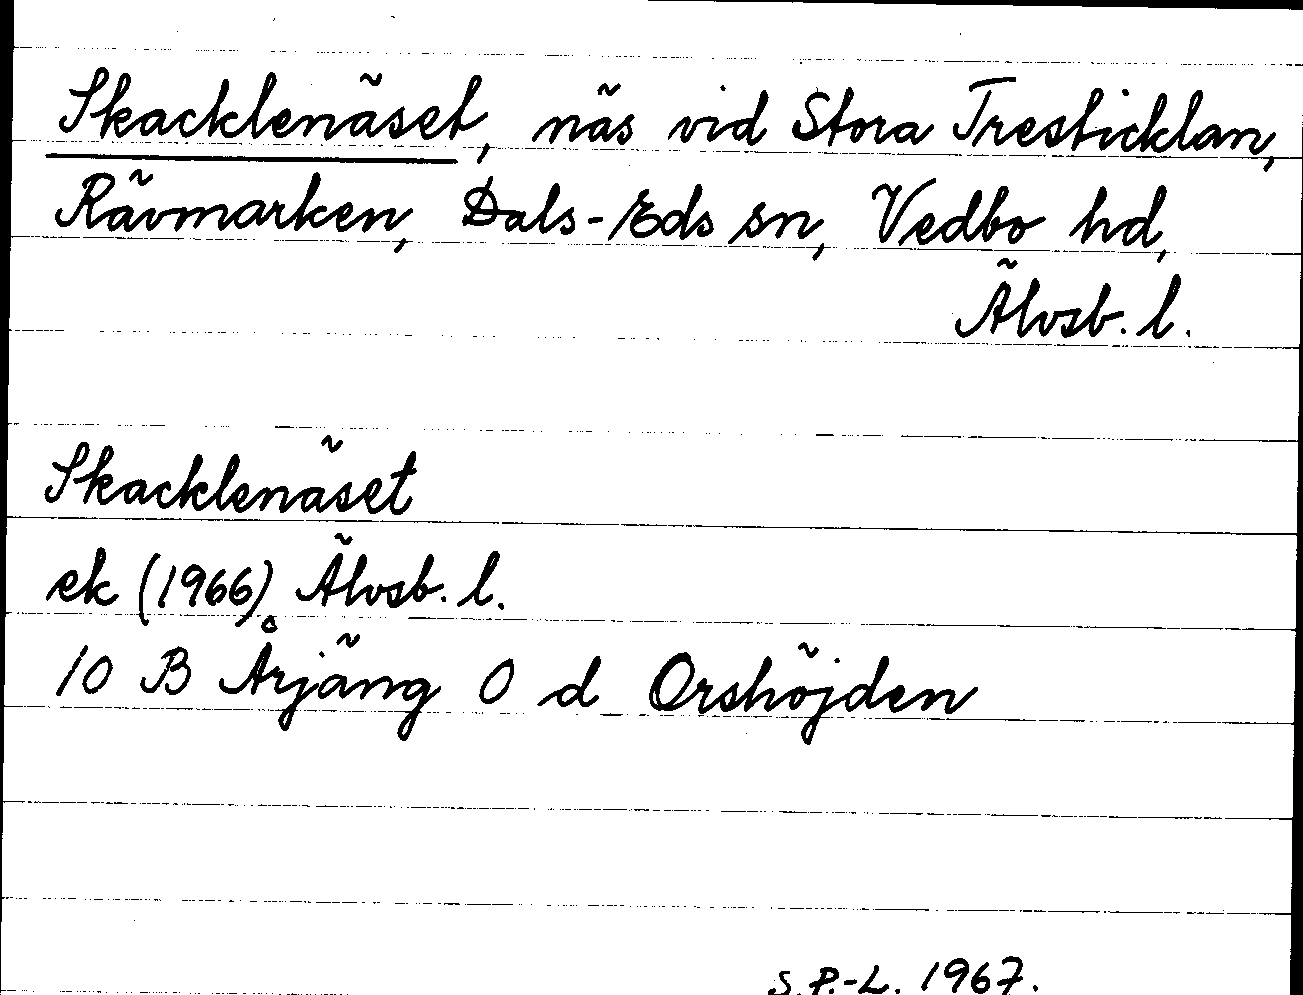 Skacklenäset, näs vid Stora Tresticklan,
Rävmarken, Dals-Eds sn, Vedbo hd,
Älvsb. l.
Skacklenäset
ek (1966) Älvsb. l.
10 B Årjäng 0 d Orshöjden
S.P.-L. 1967.